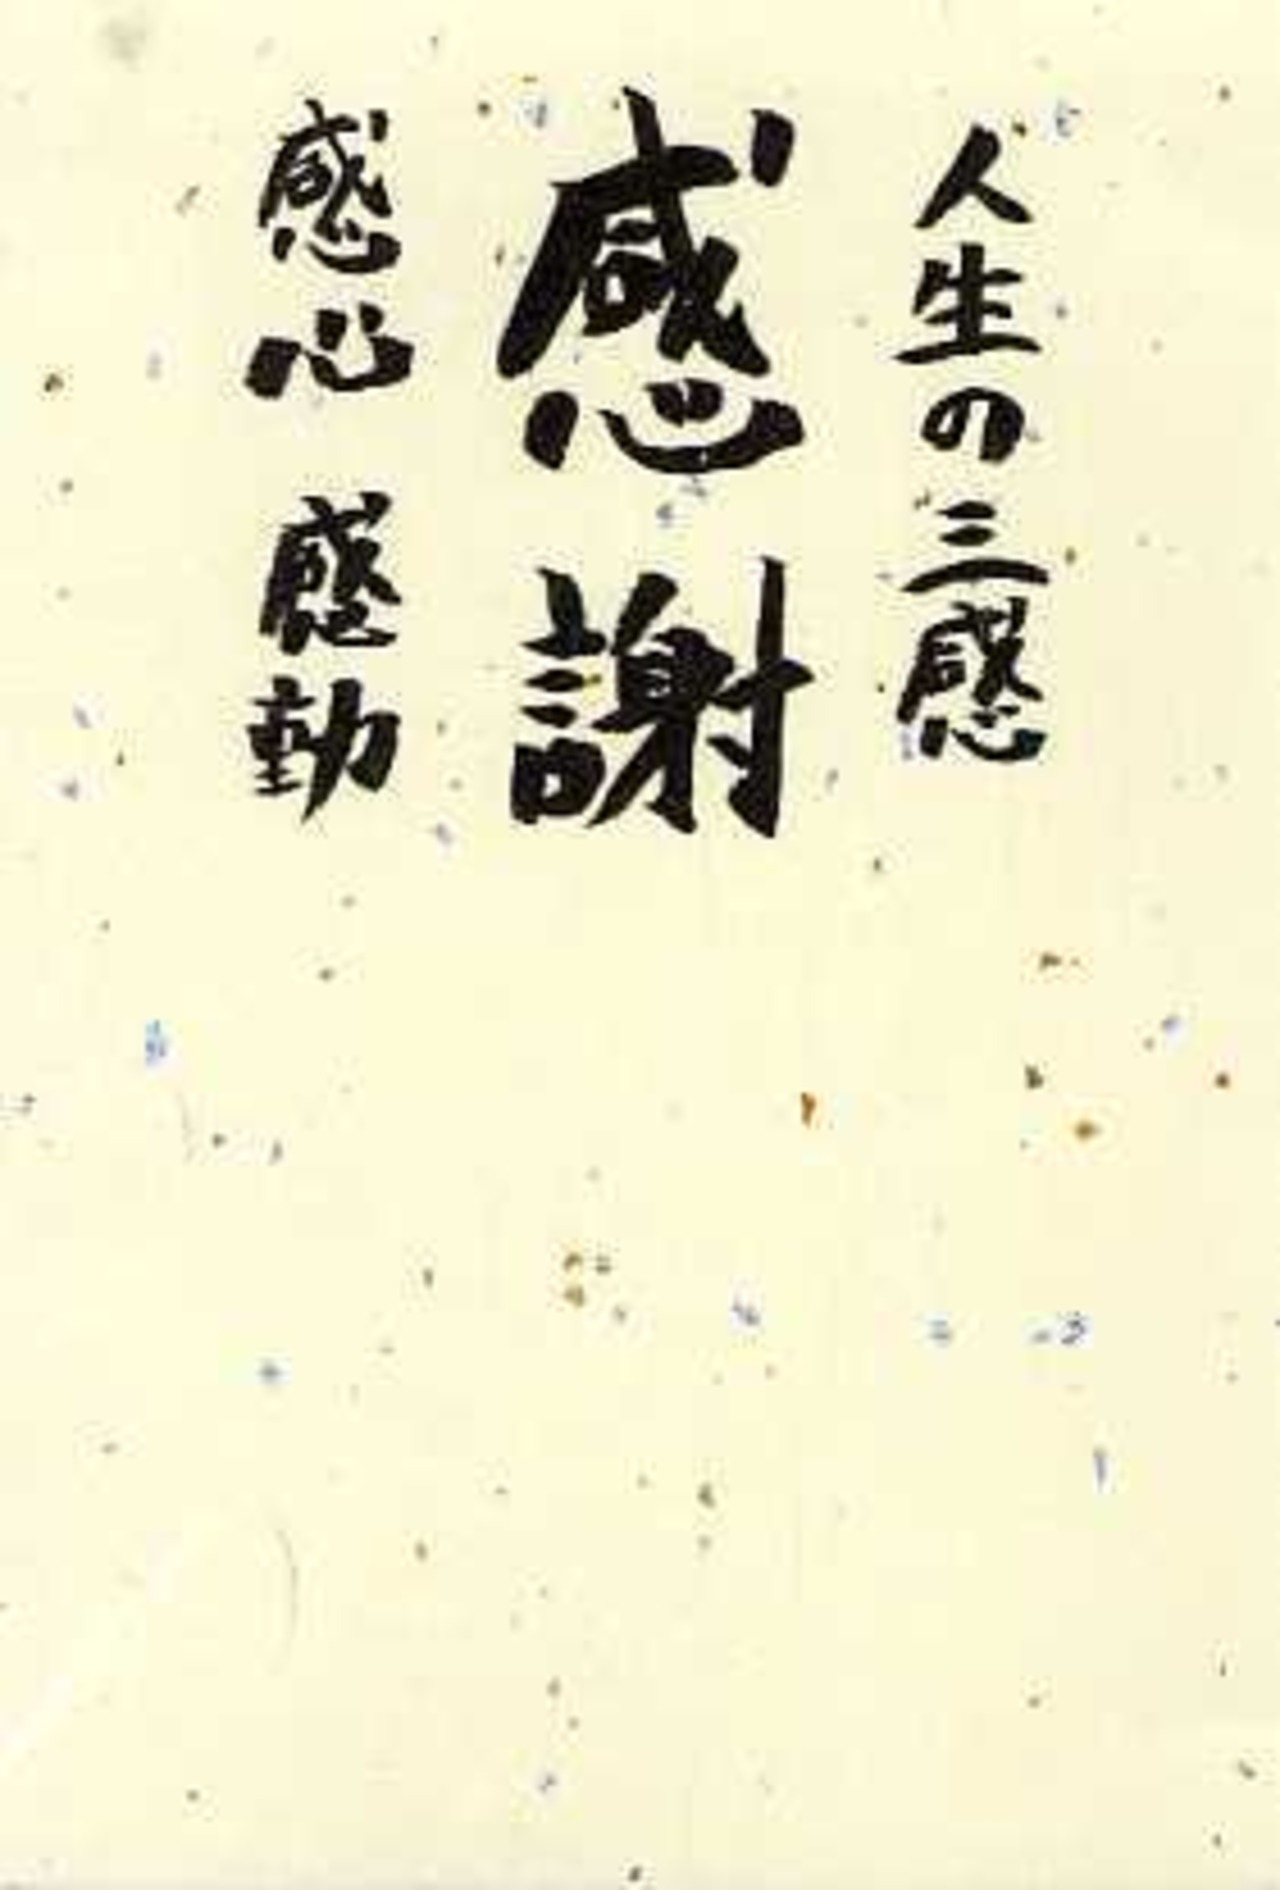 人生の三感
感謝
感心 感動